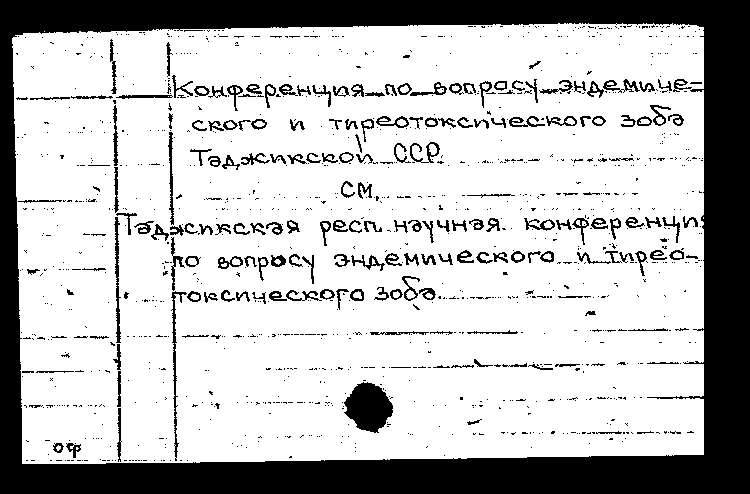 Конференция по вопросу эндемиче=
ского и тиреотоксического зоба
Таджикской ССР.
см.
Таджикская респ. научная конференция
по вопросу эндемического и тирео-
токсического зоба.